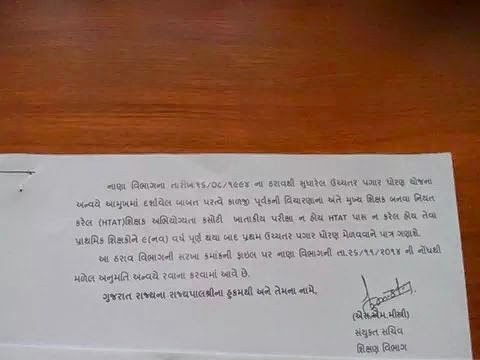 નાણા વિભાગના તારીખ૧૬/૦૮/૧૯૯૪ ના ઠરાવથી સુધારેલ ઉચ્ચતર પગાર ધોરણ યોજના
અન્વયે આમુખમાં દર્શાવેલ બાબત પરત્વે કાળજી પૂર્વકની વિચારણાના અંતે મુખ્ય શિક્ષક બનવા નિયત
કરેલ (HTAT)શિક્ષક અભિયોગ્યતા કસોટી ખાતાકીય પરીક્ષા ન હોય HTAT પાસ ન કરેલ હોય તેવા
પ્રાથમિક શિક્ષકોને ૯(નવ) વર્ષ પૂર્ણ થયા બાદ પ્રથમ ઉચ્ચતર પગાર ધોરણ મેળવવાને પાત્ર ગણાશે.
આ ઠરાવ વિભાગની સરખા ક્રમાંકની ફાઇલ પર નાણા વિભાગની તા.૨૬/૧૧/૨૦૧૪ ની નોંધથી
મળેલ અનુમતિ અન્વયે રવાના કરવામાં આવે છે.
ગુજરાત રાજ્યના રાજ્યપાલશ્રીના હુકમથી અને તેમના નામે,
(એસ.એમ.મીસ્ત્રી)
સંયુક્ત સચિવ
શિક્ષણ વિભાગ